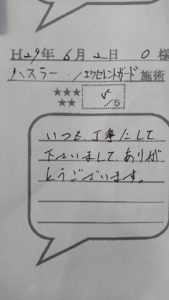 H29年 6月 2日 O様
ハスラー / エクセレントガード 施術
★★★
★★
5
/5
いつも 丁寧にして
下さいまして、ありが
とうございます。